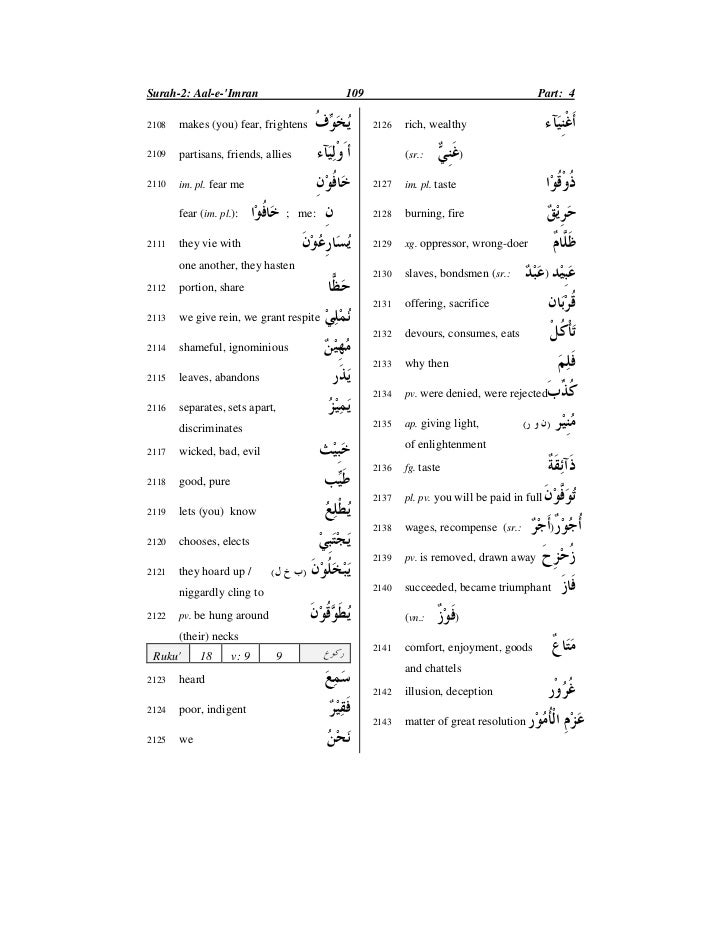 Surah-2: Aal-e-'Imran 109 Part: 4
2108 makes (you) fear, frightens يُخَوِّفُ
2109 partisans, friends, allies أَوْلِيَآء
2110 im. pl. fear me خَافُوْنِ
fear (im. pl.): خَافُوْا ; me: نِ
2111 they vie with يُسَارِعُوْنَ
one another, they hasten
2112 portion, share حَظًّا
2113 we give rein, we grant respite نُمْلِيْ
2114 shameful, ignominious مُهِيْنٌ
2115 leaves, abandons يَذَر
2116 separates, sets apart, يَمِيْزُ
discriminates
2117 wicked, bad, evil خَبِيْث
2118 good, pure طَيِّب
2119 lets (you) know يُطْلِعُ
2120 chooses, elects يَجْتَبِيْ
2121 they hoard up / (ب خ ل) يَبْخَلُوْنَ
niggardly cling to
2122 pv. be hung around يُطَوَّقُوْنَ
(their) necks
Ruku' 18 v: 9 9 ركوع
2123 heard سَمِعَ
2124 poor, indigent فَقِيْرٌ
2125 we نَحْنُ
2126 rich, wealthy أَغْنِيَآء
(sr.: غَنِيٌّ)
2127 im. pl. taste ذُوْقُوْا
2128 burning, fire حَرِيْقٌ
2129 xg. oppressor, wrong-doer ظَلَّامٌ
2130 slaves, bondsmen (sr.: عَبْدٌ) عَبِيْد
2131 offering, sacrifice قُرْبَان
2132 devours, consumes, eats تَأْكُلْ
2133 why then فَلِمَ
2134 pv. were denied, were rejected كُذِّبَ
2135 ap. giving light, (ن و ر) مُنِيْر
of enlightenment
2136 fg. taste ذَآئِقَةٌ
2137 pl. pv. you will be paid in full تُوَفَّوْنَ
2138 wages, recompense (sr.: أَجْرٌ) أُجُوْرٌ
2139 pv. is removed, drawn away زُحْزِحَ
2140 succeeded, became triumphant فَازَ
(vn.: فَوْزٌ)
2141 comfort, enjoyment, goods مَتَاعٌ
and chattels
2142 illusion, deception غُرُوْر
2143 matter of great resolution عَزْمِ الْأُمُوْر